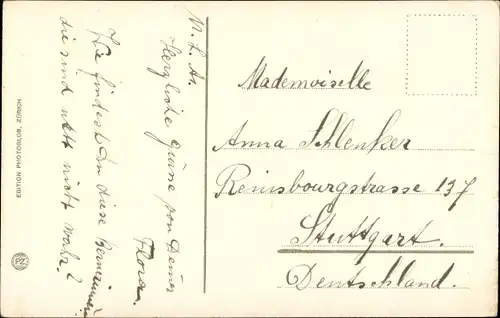 M. L. An.
Herzliche Grüsse von Deiner
Flora.
Wie findest Du diese Bernerinnen?
die sind nett nicht wahr?
Mademoiselle
Anna Schlenker
Reinsbourgstrasse 137
Stuttgart.
Deutschland.
EDITION PHOTOGLOB, ZÜRICH
PZ